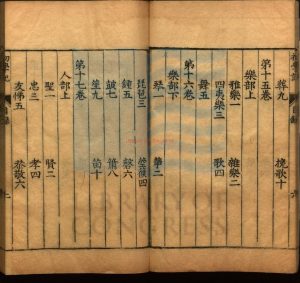 葬九 挽歌十
第十五卷
樂部上
雅樂一 雜樂二
四夷樂三 歌四
舞五
第十六卷
樂部下
琴一 箏二
琵琶三 箜篌四
鐘五 磬六
鼓七 簫八
笙九 笛十
第十七卷
人部上
聖一 賢二
忠三 孝四
友悌五 恭敬六
CONGRESS